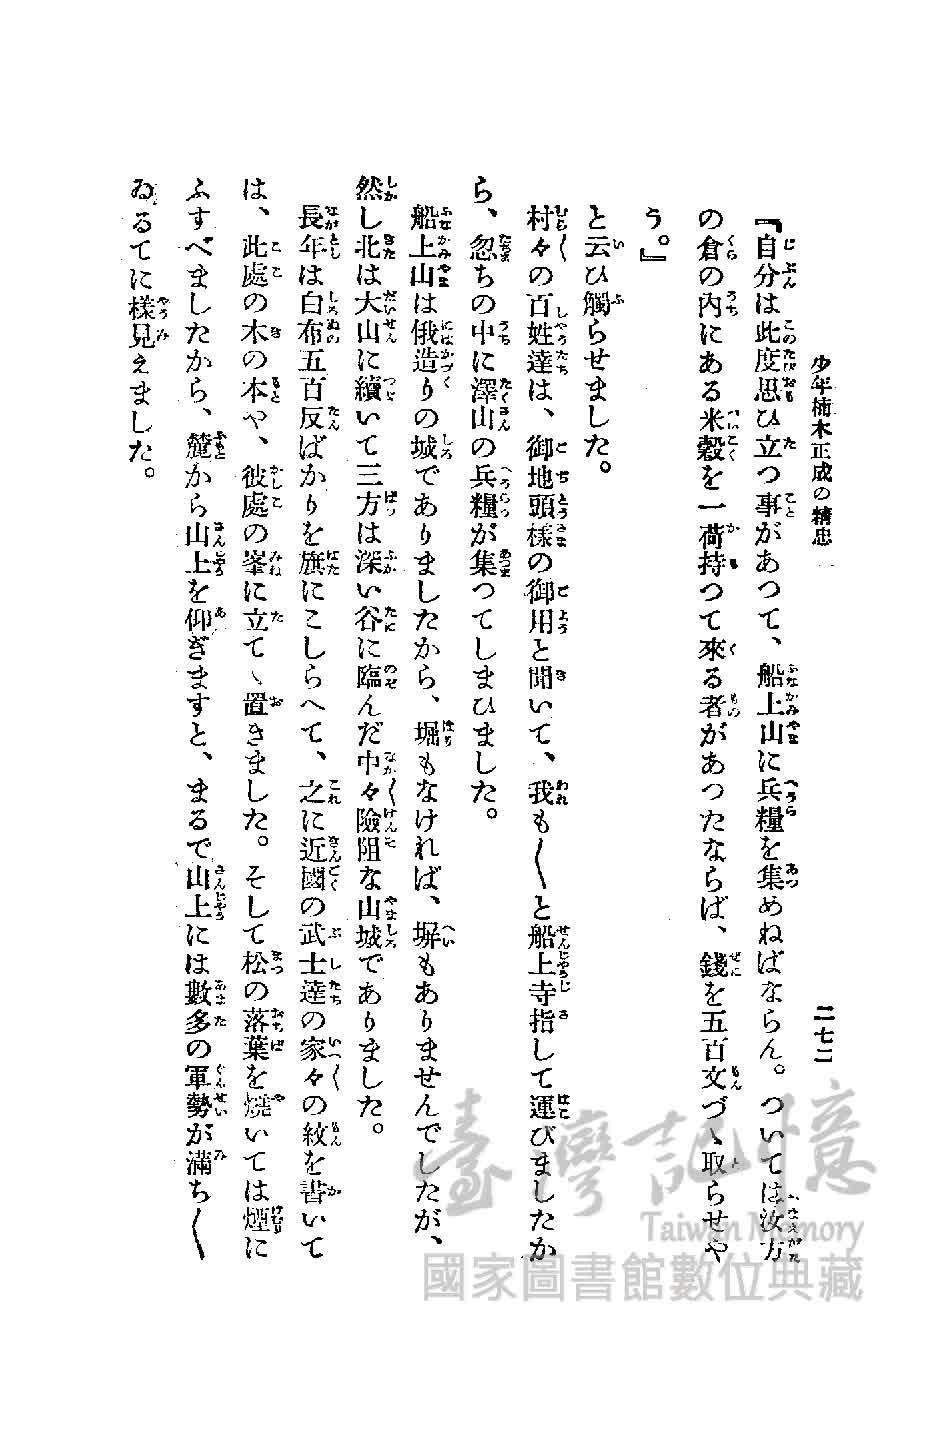 少年楠木正成の精忠
二七二
『自分は此度思ひ立つ事があつて、船上山に兵糧を集めねばならん。ついては汝方
の倉の内にある米穀を一荷持つて來る者があつたならば、錢を五百文づゝ取らせや
う。』
と云ひ觸らせました。
村々〱の百姓達は、御地頭樣の御用と聞いて、我も〱と船上寺指して運びましたか
ら、忽ちの中に澤山の兵糧が集つてしまひました。
船上山は俄造りの城でありましたから、堀もなければ、塀もありませんでしたが、
然し北は大山に續いて三方は深い谷に臨んだ中々〱險阻な山城でありました。
長年は白布五百反ばかりを旗にこしらへて、之に近國の武士達の家々〱の紋を書いて
は、此處の木の本や、彼處の峯に立てゝ置きました。そして松の落葉を燒いては煙に
ふすべましたから、麓から山上を仰ぎますと、まるで山上には數多の軍勢が滿ち〱
ゐるてに樣見えました。
臺灣記憶
Taiwan Memory
國家圖書館數位典藏